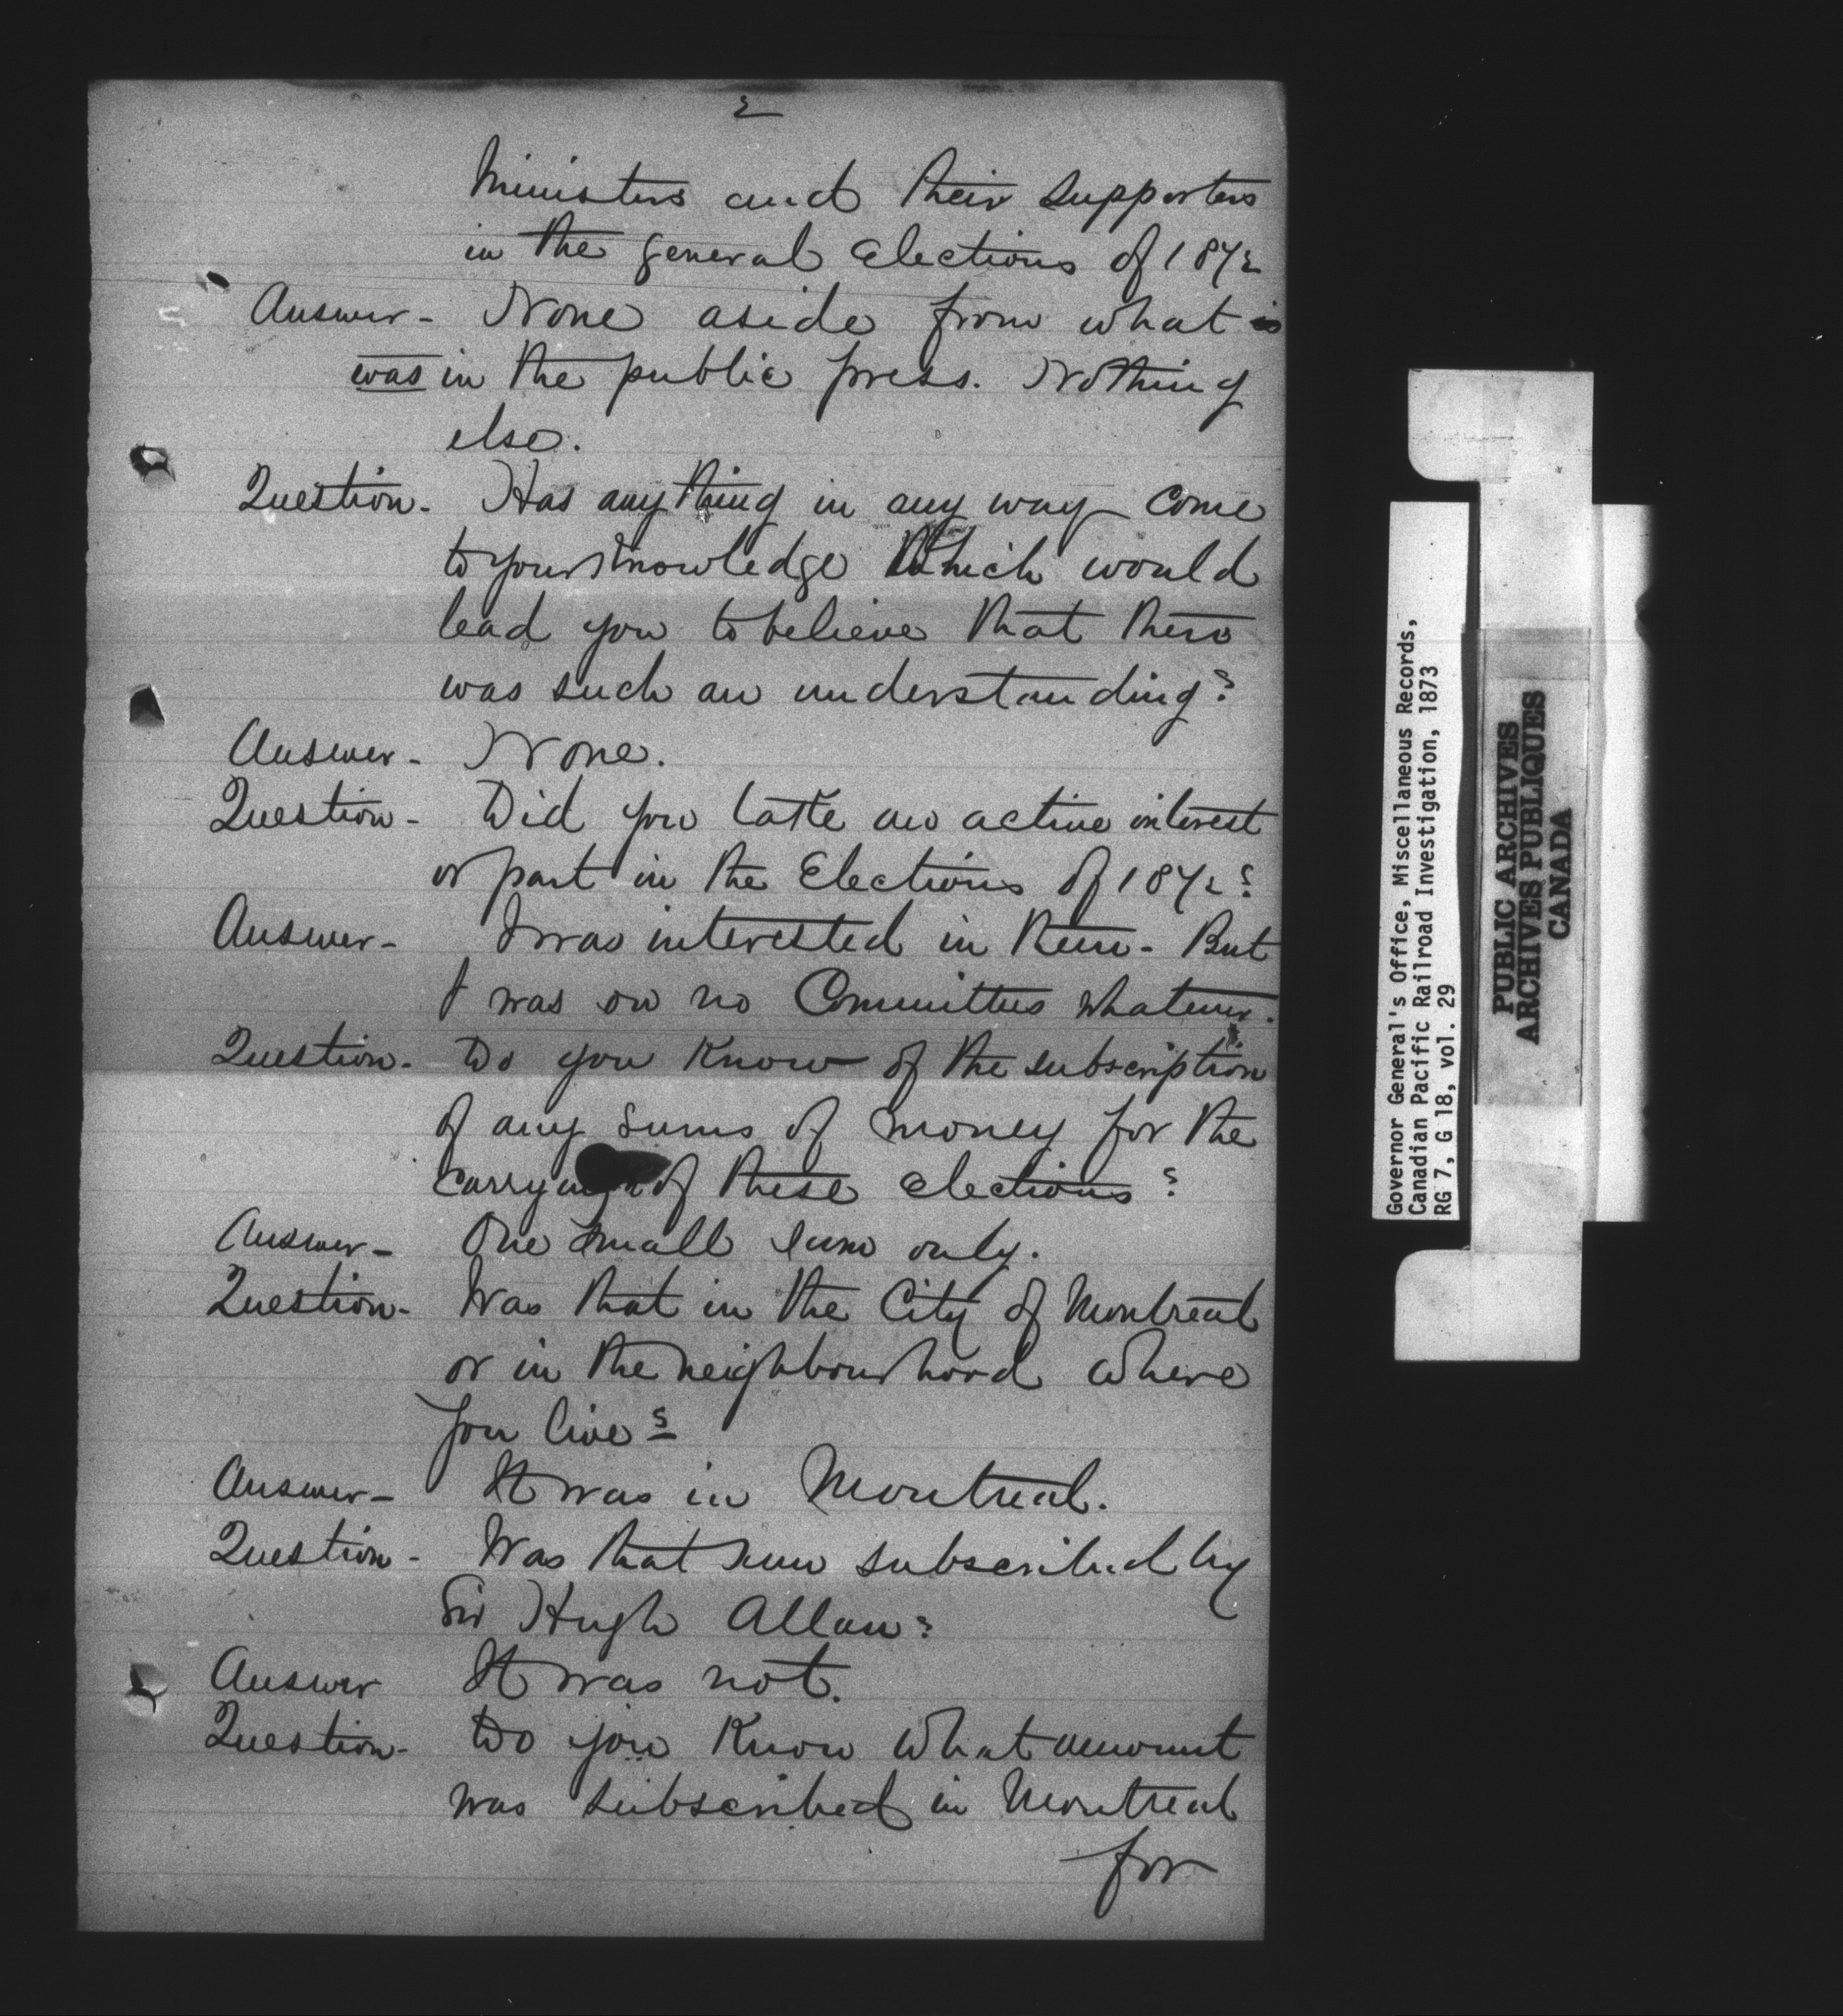 2
Ministers and their supporters
in the general elections of 1872
Answer - None aside from what is
was in the public press. Nothing
else.
Question - Has anything in any way come
to your knowledge which would
lead you to believe that there
was such an understanding?
Answer - None.
Question - Did you take an active interest
or part in the Elections of 1872?
Answer - I was interested in them - But
I was on no Committees whatever.
Question - Do you know of the subscription
of any sums of money for the
carrying of these elections?
Answer - One small sum only.
Question - Was that in the City of Montreal
or in the neighbourhood where
you live?
Answer - It was in Montreal.
Question - Was that sum subscribed by
Sir Hugh Allan?
Answer It was not.
Question - Do you know what amount
was subscribed in Montreal
for
Governor General's Office, Miscellaneous Records,
Canadian Pacific Railroad Investigation, 1873
RG 7, G 18, vol. 29
PUBLIC ARCHIVES
ARCHIVES PUBLIQUES
CANADA